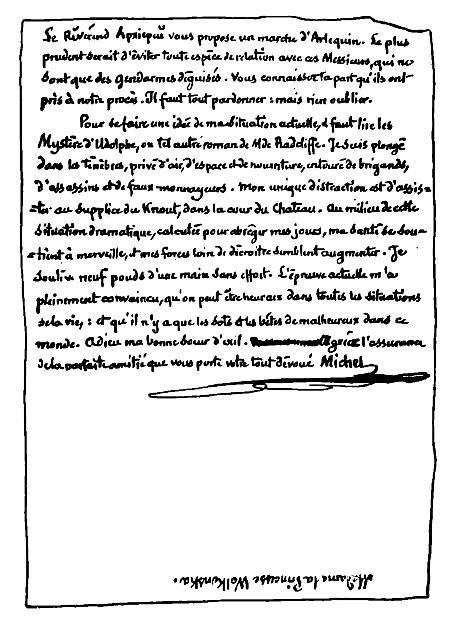 Le Révérend Apxiepuŭ vous propose un marche d'Arlequin. Le plus
prudent serait d'éviter toute espèce de relation avec ces Messieurs, qui ne
sont que des gendarmes déguisés. Vous connaissez la part qu'ils ont
pris à notre procès. Il faut tout pardonner : mais rien oublier.
Pour se faire une idée de ma situation actuelle, il faut lire les
Mystère d'Udolphe, ou tel autre roman de Mde Radcliffe. Je suis plongé
dans les ténèbres, privé d'air, d'espace et de nourriture, entouré de brigands,
d'assassins et de faux monnayeurs. Mon unique distraction est d'assis-
-ter au supplice du Knout, dans la cour du Chateau. Au milieu de cette
situation dramatique, calculée pour abréger mes jours, ma santé se sou-
-tient à merveille, et mes forces loin de décroitre semblent augmenter. Je
soulève neuf pouds d'une main sans effort. L'épreuve actuelle m'a
pleinement convaincu, qu'on peut être heureux dans toutes les situations
de la vie, : et qu'il n'y a que les sots et les bêtes de malheureux dans ce
monde. Adieu ma bonne sœur d'exil. Agréez l'assurance
de la parfaite amitié que vous porte votre tout dévoué Michel
Madame la Princesse Wolkonska.